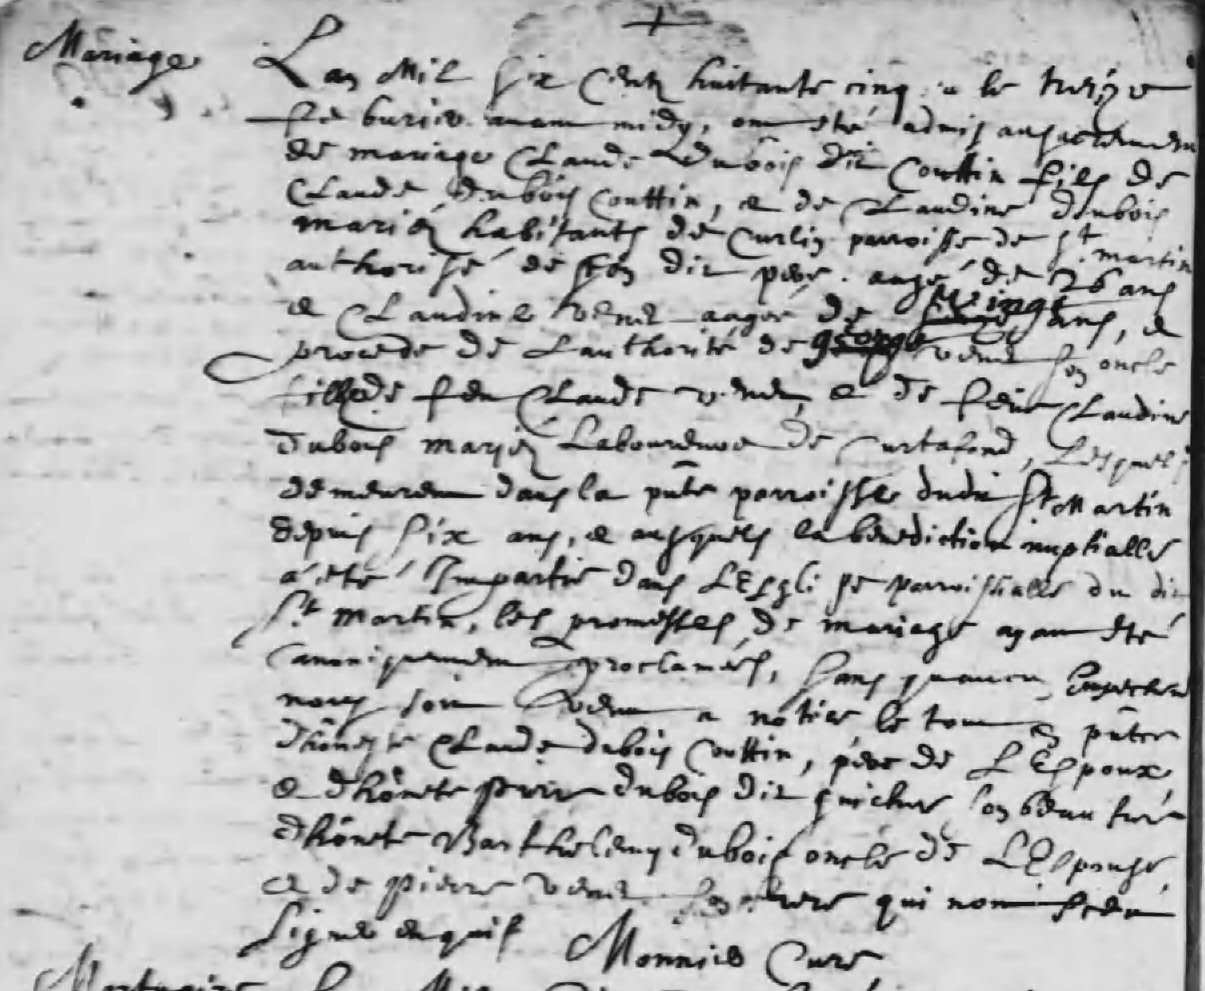 Mariage
Lan Mil six Cents huitante cinq & le treize
febvrier avant midy, ont été admis au sacrement
de mariage Claude Dubois dit Couttin fils de
Claude dubois Couttin, & de Claudine dubois
mariés habitants de Curlin parroisse de St. martin
authorisé de son dit pere. aagé de 26 ans
& Claudine venet aagée de vingt ans, &
procede de Lauthorité de george venet son oncle
fille de feu Claude venet, & de feue Claudine
dubois mariés Laboureurs de Curtafond, Lesquels
demeurent dans la pñte parroisse dudit St Martin
depuis six ans, & ausquels la benediction nuptialle
a été Impartie dans LEsglise parroissialle du dit
St. martin, les promesses de mariage ayant été
Canoniquement proclamées, sans quaucun Empechem
nous soit venu a notice, le tout en pñtce
dhôneste Claude dubois Couttin, pere de LEspoux,
& dhônete pierre dubois dit son beau frere
dhônete Barthelemy dubois oncle de LEspouse,
& de pierre venet son frere qui nont sceu
signer enquis Monnier Curé
Mortuaire